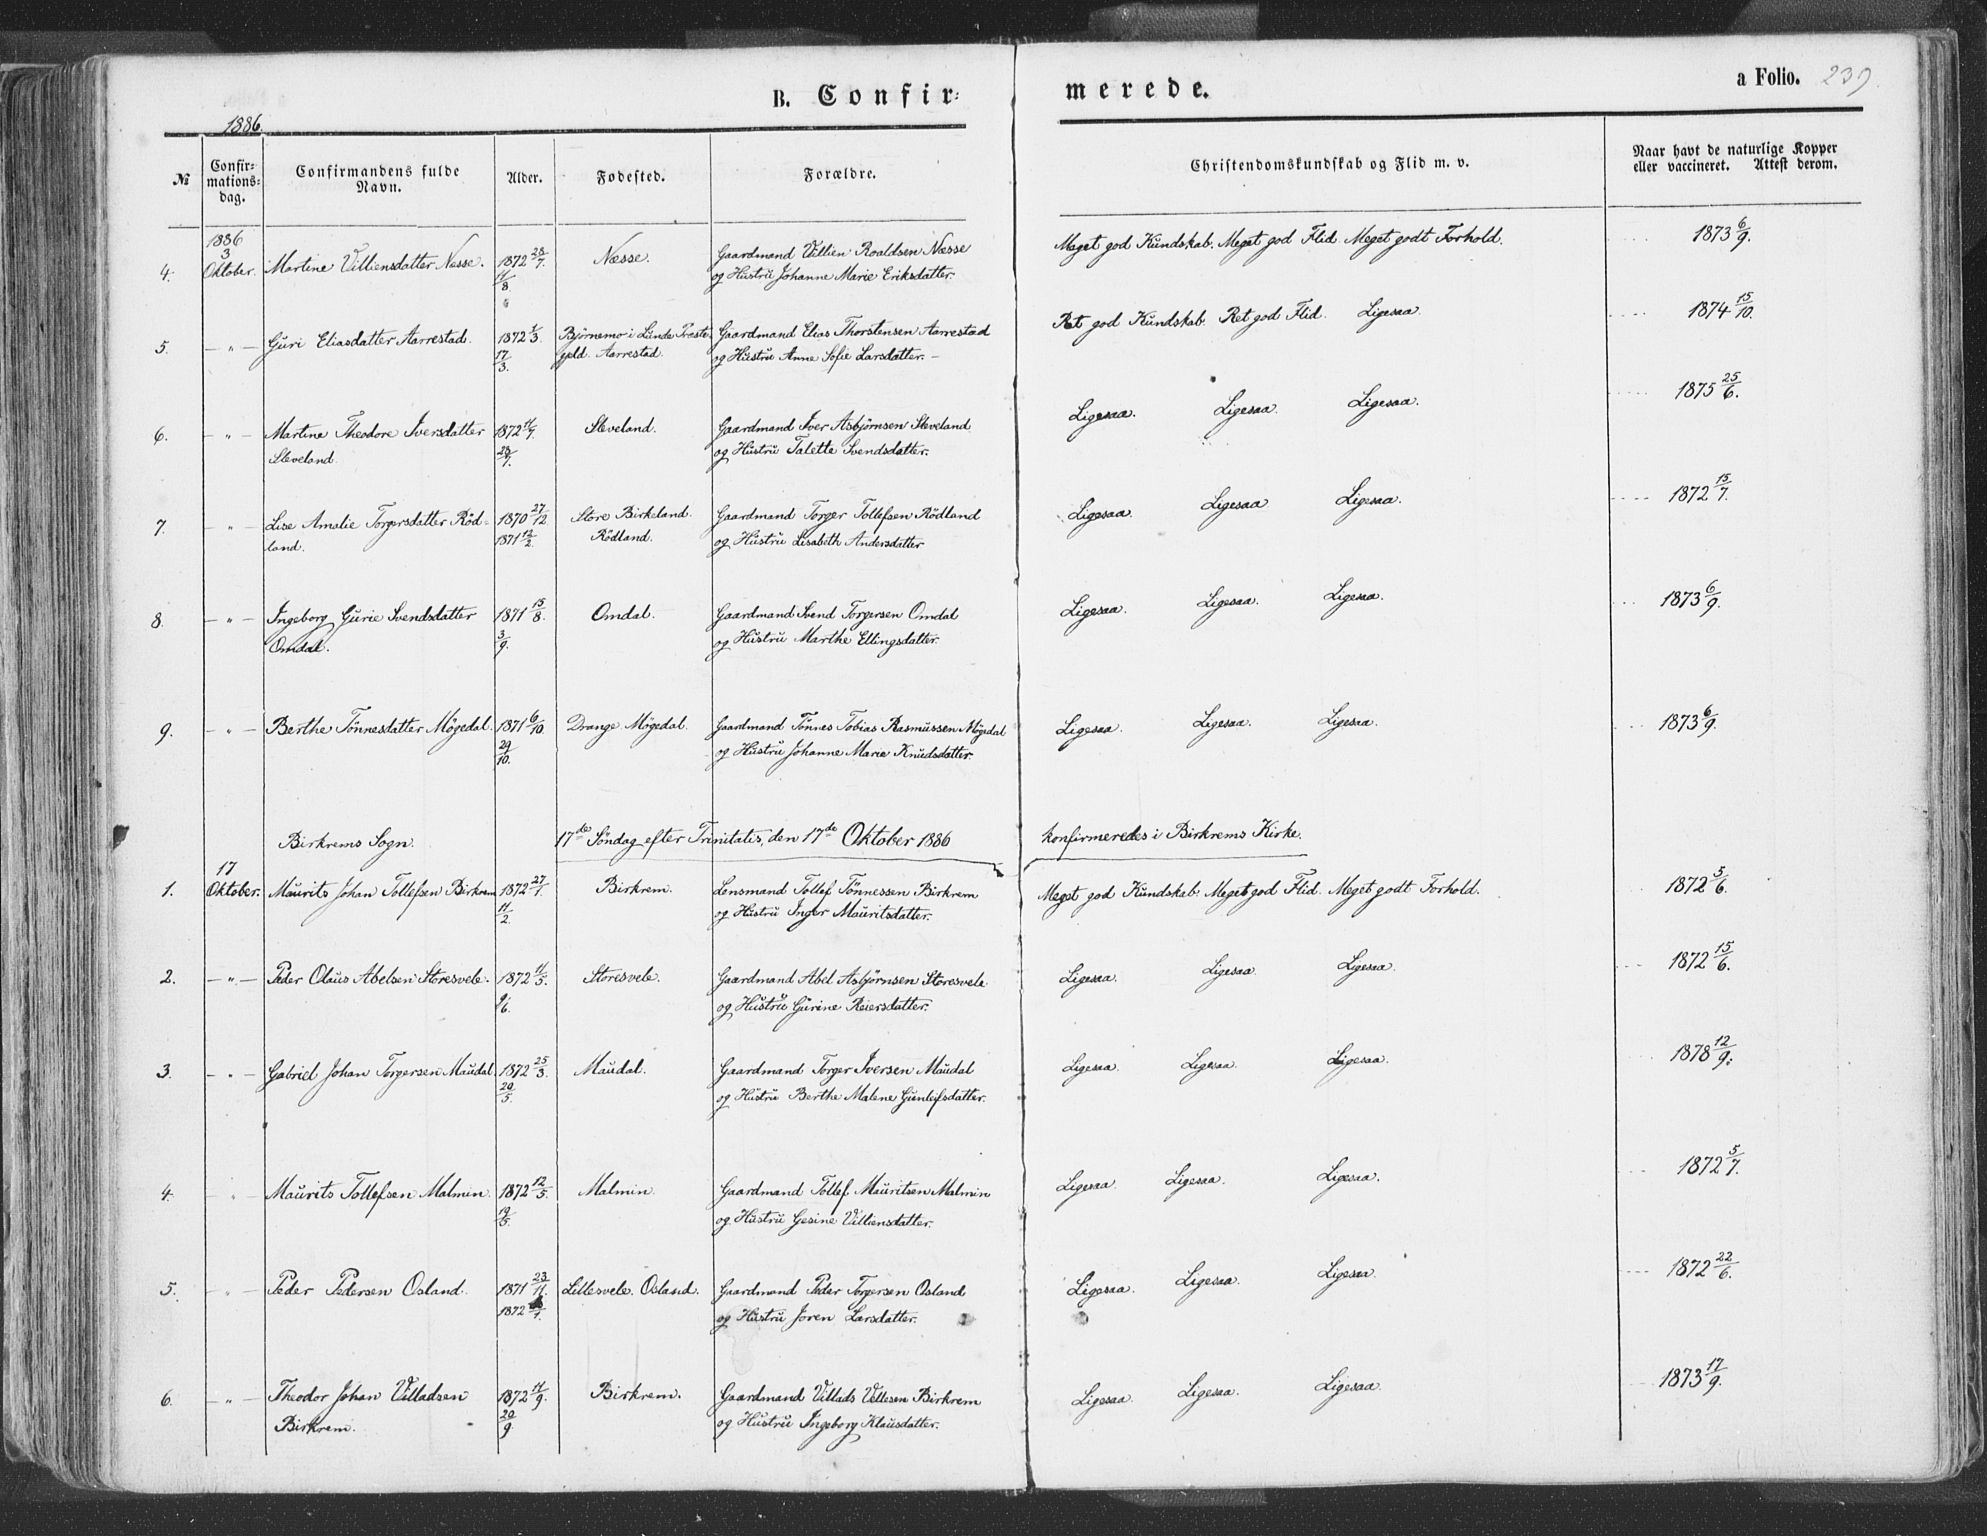 B. Confir- merede.
a Folio. 239.
1886.
№ Confir-mations-dag. Confirmandens fulde Navn. Alder. Fødested. Forældre. Christendomskundskab og Flid m. v. Naar havt de naturlige Kopper eller vaccineret. Attest derom.
1886
3
4. Oktober. Martine Villiensdatter Næsse. 1872 28/7. Næsse. Gaardmand Villien Roaldsen Næsse Meget god Kundskab. Meget god Flid. Meget godt Forhold. 1873 6/9.
11/8 og Hustru Johanne Marie Eriksdatter.
5. — " — Guri Eliasdatter Aarrestad. 1872 1/3. Bjørnemo i Lunde Præste- Gaardmand Elias Thorstensen Aarrestad Ret god Kundskab. Ret god Flid. Ligesaa. 1874 15/10.
17/3. gjeld. Aarrestad. og Hustru Anne Sofie Larsdatter. —
6. — " — Martine Theodore Iversdatter 1872 11/7. Sleveland. Gaardmand Iver Asbjørnsen Sleveland Ligesaa. Ligesaa. Ligesaa. 1875 25/6.
Sleveland. 28/7. og Hustru Talette Svendsdatter.
7. — " — Lise Amalie Torgersdatter Rød- 1870 27/12 Store Birkeland. Gaardmand Torger Tollefsen Rødland Ligesaa. Ligesaa Ligesaa. 1872 15/7.
land. 1871 12/2. Rødland. og Hustru Lisabeth Andersdatter
8. — " — Ingeborg Gurie Svendsdatter 1871 15/8. Omdal. Gaardmand Svend Torgersen Omdal Ligesaa. Ligesaa. Ligesaa. 1873 6/9.
Omdal. 3/9. og Hustru Marthe Ellingsdatter.
9. — " — Berthe Tønnesdatter Møgedal. 1871 6/10. Drange Møgedal. Gaardmand Tønnes Tobias Rasmussen Møgedal Ligesaa. Ligesaa. Ligesaa. 1873 6/9.
29/10. og Hustru Johanne Marie Knudsdatter.
Birkrems Sogn. 17de Søndag efter Trinitatis, den 17de Oktober 1886 konfirmeredes i Birkrems Kirke.
17
1. Oktober. Maurits Johan Tollefsen Birkrem 1872 27/1. Birkrem. Lensmand Tollef Tønnessen Birkrem Meget god Kundskab. Meget god Flid. Meget godt Forhold. 1872 5/6.
11/2. og Hustru Inger Mauritsdatter.
2. — " — Peder Olaus Abelsen Storesvele. 1872 11/5. Storesvele. Gaardmand Abel Asbjørnsen Storesvele Ligesaa. Ligesaa. Ligesaa. 1872 15/6.
9/6. og Hustru Gurine Reiersdatter.
3. — " — Gabriel Johan Torgersen Maudal. 1872 25/3. Maudal. Gaardmand Torger Iversen Maudal Ligesaa. Ligesaa. Ligesaa. 1878 12/9.
20/5. og Hustru Berthe Malene Gunleifsdatter.
4. " Maurits Tollefsen Malmin. 1872 12/5. Malmin. Gaardmand Tollef Mauritsen Malmin Ligesaa. Ligesaa. Ligesaa. 1872 5/7.
19/5. og Hustru Gesine Villiensdatter.
5. — " — Peder Pedersen Osland. 1871 23/11. Lillesvele. Osland. Gaardmand Peder Torgersen Osland Ligesaa. Ligesaa. Ligesaa. 1872 22/6.
1872 og Hustru Joren Larsdatter.
6. — " — Theodor Johan Villadsen 1872 11/9. Birkrem. Gaardmand Villads Vellesen Birkrem Ligesaa. Ligesaa. Ligesaa. 1873 17/9.
Birkrem. 20/9. og Hustru Ingeborg Klausdatter.